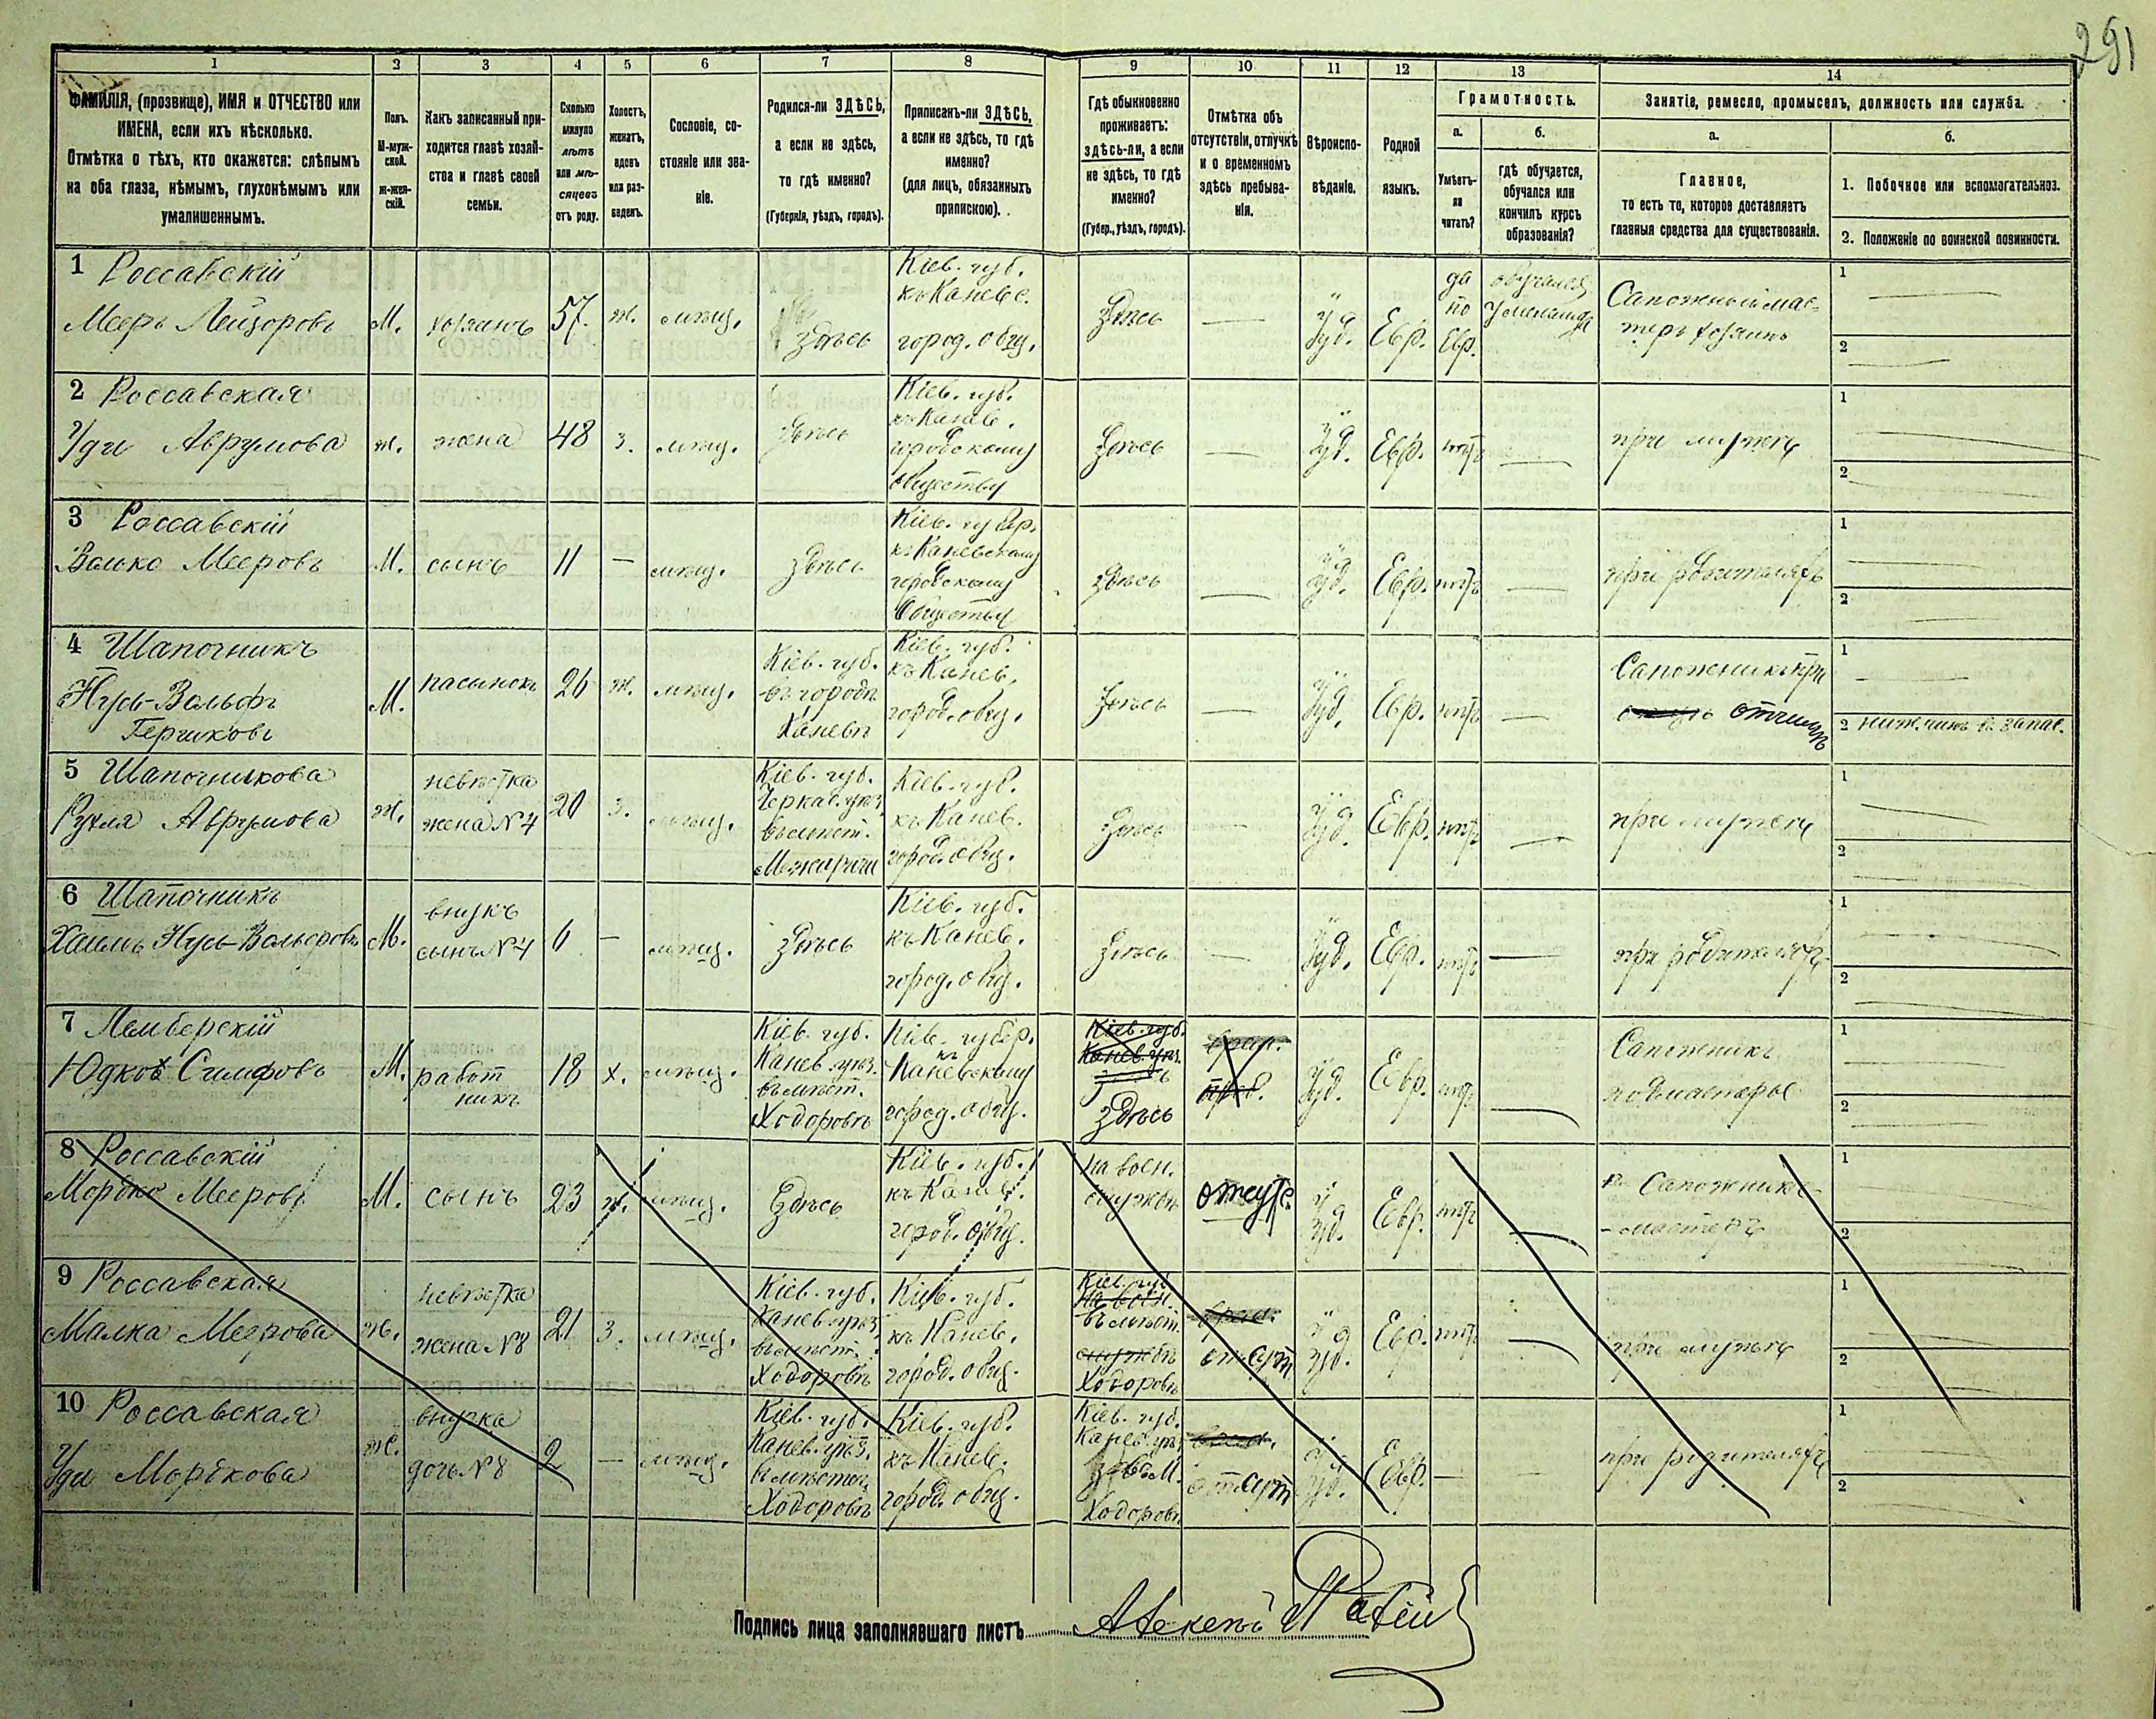 291
1 2 3 4 5 6 7 8 9 10 11 12 13 14
ФАМИЛІЯ, (прозвище), ИМЯ и ОТЧЕСТВО или
ИМЕНА, если ихъ нѣсколько.
Отмѣтка о тѣхъ, кто окажется: слѣпымъ
на оба глаза, нѣмымъ, глухонѣмымъ или
умалишеннымъ.
Полъ.
М-муж-
ской.
ж-жен-
скій.
Какъ записанный при-
ходится главѣ хозяй-
ства и главѣ своей
семьи.
Сколько
минуло
лѣтъ
или мѣ-
сяцевъ
отъ роду.
Холостъ,
женатъ,
вдовъ
или раз-
веденъ.
Сословіе, со-
стояніе или зва-
ніе.
Родился-ли ЗДѢСЬ,
а если не здѣсь,
то гдѣ именно?
(Губернія, уѣздъ, городъ).
Приписанъ-ли ЗДѢСЬ,
а если не здѣсь, то гдѣ
именно?
(для лицъ, обязанныхъ
припискою).
Гдѣ обыкновенно
проживаетъ:
здѣсь-ли, а если
не здѣсь, то гдѣ
именно?
(Губер., уѣздъ, городъ).
Отмѣтка объ
отсутствіи, отлучкѣ
и о временномъ
здѣсь пребыва-
ніи.
Вѣроиспо-
вѣданіе.
Родной
языкъ.
Грамотность.
а.
Умѣетъ-
ли
читать?
б.
гдѣ обучается,
обучался или
кончилъ курсъ
образованія?
Занятіе, ремесло, промыселъ, должность или служба.
а.
Главное,
то есть то, которое доставляетъ
главныя средства для существованія.
б.
1. Побочное или вспомогательное.
2. Положеніе по воинской повинности.
1 Россавскій
Мееръ Лейзоровъ
М.
хозяинъ
57.
ж.
мѣщ.
здѣсь
Кіев. губ.
къ Каневс.
город. общ.
Здѣсь
—
Іуд.
Евр.
да
по
Евр.
обучался
у меламда
Сапожный мас-
теръ хозяинъ
1 —
2 —
2 Россавская
Удя Аврумова
ж.
жена
48
з.
мѣщ.
Здѣсь
Кіев. губ.
къ Канев.
городскому
обществу
Здѣсь
—
Іуд.
Евр.
нѣтъ
—
при мужѣ
1
2
3 Россавскій
Волько Мееровъ
М.
сынъ
11
—
мѣщ.
Здѣсь
Кіев. губер.
къ Каневскому
городскому
Обществу
здѣсь
—
Іуд.
Евр.
нѣтъ
—
при родителяхъ
1
2
4 Шапочникъ
Нусь-Вольфъ
Гершковъ
М.
пасынокъ
26
ж.
мѣщ.
Кіев. губ.
въ городѣ
Каневѣ
Кіев. губ.
къ Канев.
город. общ.
Здѣсь
—
Іуд.
Евр.
нѣтъ
—
Сапожникъ при
отчимѣ
1 —
2 ниж. чинъ в запас.
5 Шапочникова
Рухля Аврумова
ж.
невѣстка
жена №4
20
з.
мѣщ.
Кіев. губ.
Черкас. уѣз.
въ мѣст.
Межиричи
Кіев. губ.
къ Канев.
город. общ.
Здѣсь
—
Іуд.
Евр.
нѣтъ
—
при мужѣ
1
2
6 Шапочникъ
Хаимъ Нусь-Вольфовъ
М.
внукъ
сынъ №4
6
—
мѣщ.
здѣсь
Кіев. губ.
къ Канев.
город. общ.
Здѣсь
—
Іуд.
Евр.
нѣтъ
—
при родителяхъ
1
2
7 Лемберскій
Юдко Симховъ
М.
работ
никъ
18
х.
мѣщ.
Кіев. губ.
Канев. уѣз.
въ мѣст.
Ходоровѣ
Кіев. губер.
къ
Каневскому
город. общ.
Кіев. губ.
Канев. уѣз.
здѣсь
врем.
преб.
Іуд.
Евр.
нѣтъ
—
Сапожникъ
подмастерье
1
2
8 Россавскій
Мордко Мееровъ
М.
сынъ
23
ж.
мѣщ.
Здѣсь
Кіев. губ.
къ Канев.
город. общ.
на воен.
службѣ
отсут.
Іуд.
Евр.
нѣтъ
—
Сапожникъ
- мастеръ
1
2
9 Россавская
Малка Меерова
ж.
невѣстка
жена №8
21
з.
мѣщ.
Кіев. губ.
Канев. уѣз.
въ мѣст.
Ходоровѣ
Кіев. губ.
къ Канев.
город. общ.
Кіев. губ.
На воен.
въ мѣст.
службѣ
Ходоровѣ
отсут
Іуд.
Евр.
нѣтъ
—
при мужѣ
1
2
10 Россавская
Удя Мордкова
ж.
внучка
дочь №8
2
—
мѣщ.
Кіев. губ.
Канев. уѣз.
в мѣстеч.
Ходоровѣ
Кіев. губ.
къ Канев.
город. общ.
Кіев. губ.
Канев. уѣз.
въ М.
Ходоровѣ
отсут
Іуд.
Евр.
—
—
при родителяхъ
1
2
Подпись лица заполнявшаго листъ